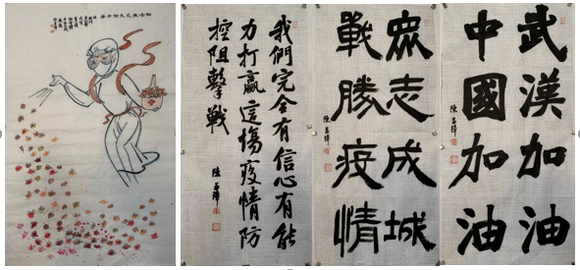 我們完全有信心有能
力打贏這場疫情防
控阻擊戰
陳
眾志成城
戰勝疫情
陳
武漢加油
中國加油
陳